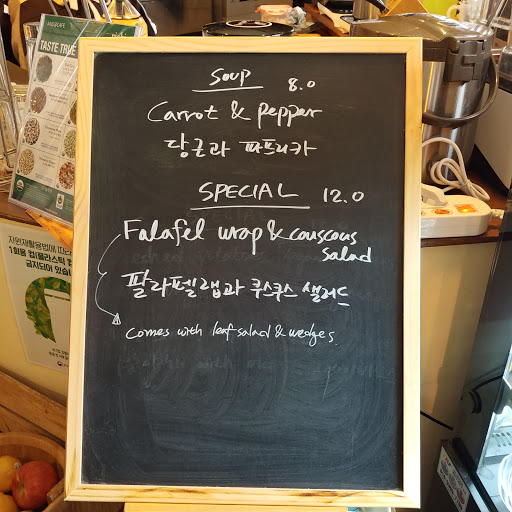 TASTE TRUE
Soup 8.0
Carrot & pepper
당근과 파프리카
SPECIAL 12.0
Falafel wrap & couscous
salad
팔라펠랩과 쿠스쿠스 샐러드
Comes with leaf salad & wedges
자원재활용법에 따라
1회용 컵(플라스틱 컵
금지되어 있습니